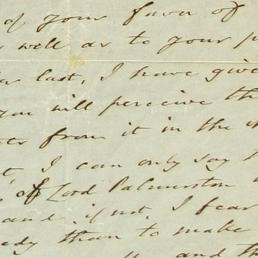 of your favor of
well as to your p
last, I have give
you will perceive th
from it in the
I can only say t
of Lord Palmerston
and if not, I fear
than to make
and th